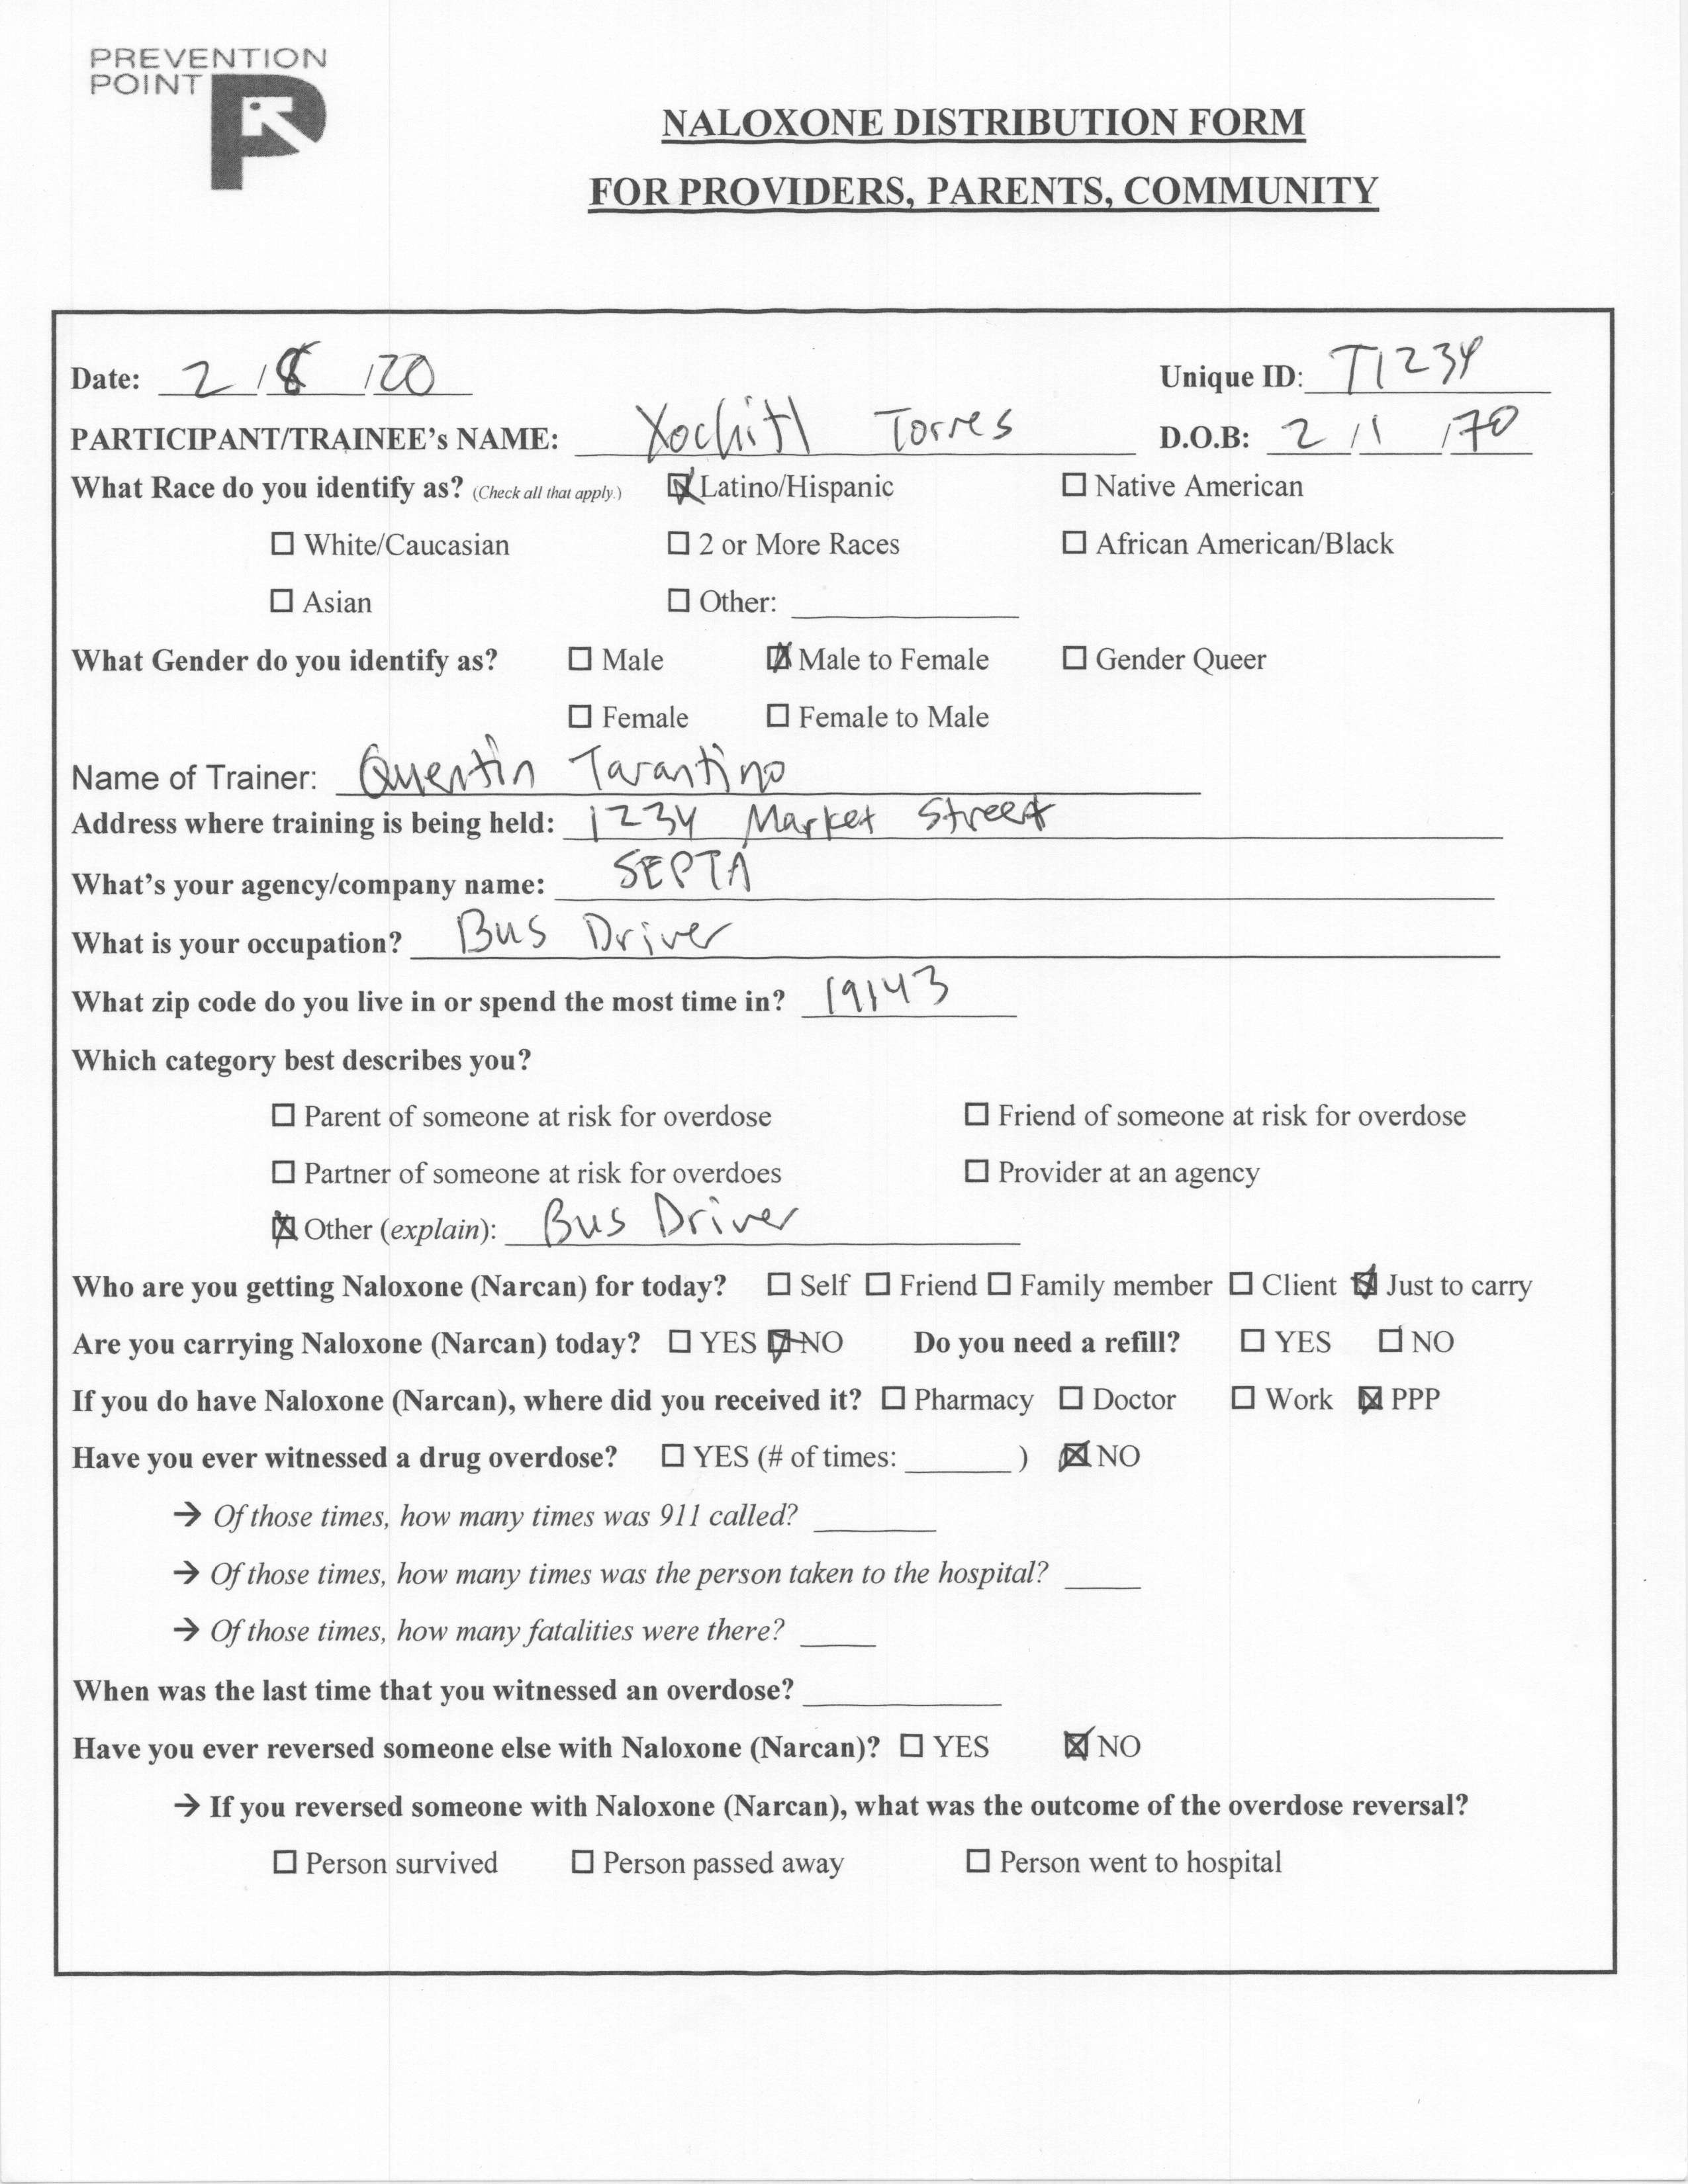 PREVENTION
POINT
NALOXONE DISTRIBUTION FORM
FOR PROVIDERS, PARENTS, COMMUNITY
Date: 2 / 8 / 20 Unique ID: T1234
PARTICIPANT/TRAINEE's NAME: Xochitl Torres D.O.B: 2 / 1 / 70
What Race do you identify as? (Check all that apply.) ☒ Latino/Hispanic ☐ Native American
☐ White/Caucasian ☐ 2 or More Races ☐ African American/Black
☐ Asian ☐ Other: ____
What Gender do you identify as? ☐ Male ☒ Male to Female ☐ Gender Queer
☐ Female ☐ Female to Male
Name of Trainer: Quentin Tarantino
Address where training is being held: 1234 Market Street
What's your agency/company name: SEPTA
What is your occupation? Bus Driver
What zip code do you live in or spend the most time in? 19143
Which category best describes you?
☐ Parent of someone at risk for overdose ☐ Friend of someone at risk for overdose
☐ Partner of someone at risk for overdoes ☐ Provider at an agency
☒ Other (explain): Bus Driver
Who are you getting Naloxone (Narcan) for today? ☐ Self ☐ Friend ☐ Family member ☐ Client ☒ Just to carry
Are you carrying Naloxone (Narcan) today? ☐ YES ☒ NO Do you need a refill? ☐ YES ☐ NO
If you do have Naloxone (Narcan), where did you received it? ☐ Pharmacy ☐ Doctor ☐ Work ☒ PPP
Have you ever witnessed a drug overdose? ☐ YES (# of times: ____ ) ☒ NO
→ Of those times, how many times was 911 called? ____
→ Of those times, how many times was the person taken to the hospital? ____
→ Of those times, how many fatalities were there? ____
When was the last time that you witnessed an overdose? ____
Have you ever reversed someone else with Naloxone (Narcan)? ☐ YES ☒ NO
→ If you reversed someone with Naloxone (Narcan), what was the outcome of the overdose reversal?
☐ Person survived ☐ Person passed away ☐ Person went to hospital